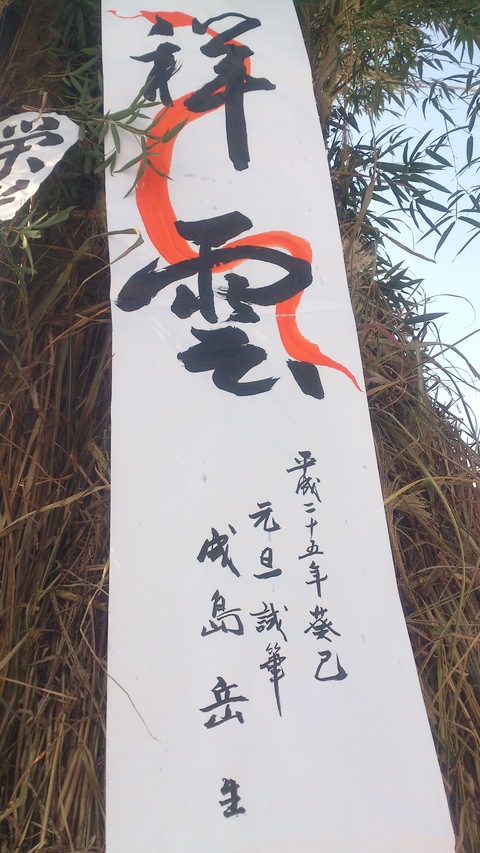 祥雲
平成二十五年 癸巳
元旦 誠筆
成島岳生
栄